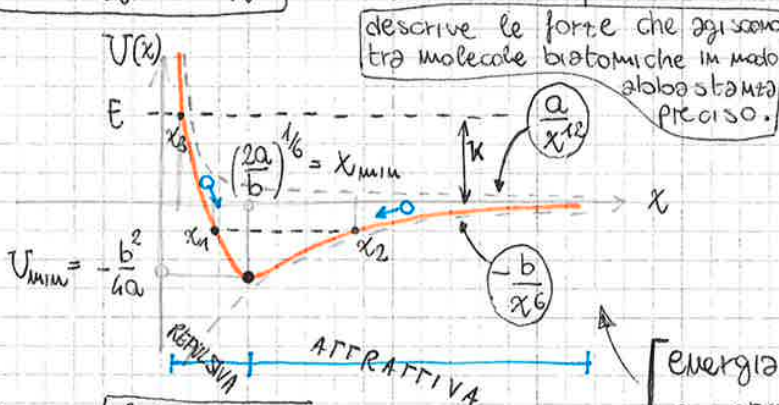 U(x)
descrive le forze che agiscono
tra molecole biatomiche in modo
abbastanza
preciso.
E
a/x¹²
x₃
(2a/b)^1/6 = x min
K
x
x₁
x₂
U min = - b²/4a
- b/x⁶
REPULSIVA
ATTRATTIVA
energia